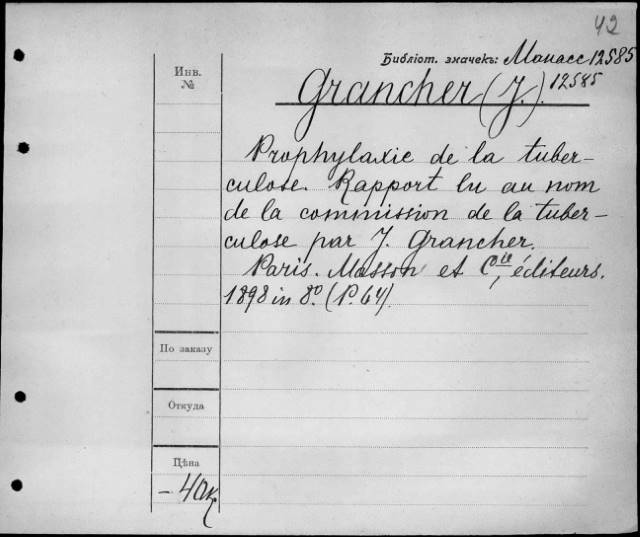 42
Библіот. значекъ: Манасс 12585
12585
Инв.
№
Grancher (J.).
Prophylaxie de la tuber-
culose. Rapport lu au nom
de la commission de la tuber-
culose par J. Grancher.
Paris. Masson et Cie, éditeurs.
1898 in 8º (P. 64).
По заказу
Откуда
Цѣна
- 40к.